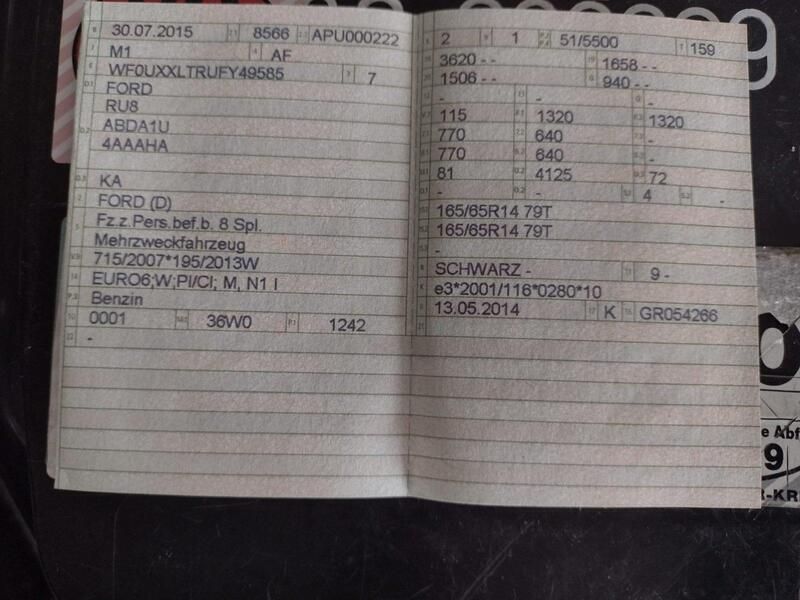 30.07.2015 8566 APU000222
M1 AF
WF0UXXLTRUFY49585 7
FORD
RU8
ABDA1U
4AAAHA
KA
FORD (D)
Fz.z.Pers.bef.b. 8 Spl.
Mehrzweckfahrzeug
715/2007*195/2013W
EURO6;W;PI/CI; M, N1 I
Benzin
0001 36W0 1242
-
2 1 51/5500 159
3620 - - 1658 - -
1506 - - 940 - -
- - -
115 1320 1320
770 640 -
770 640 -
81 4125 72
- - 4 -
165/65R14 79T
165/65R14 79T
-
SCHWARZ - 9 -
e3*2001/116*0280*10
13.05.2014 K GR054266
9
e Abf
9
R-KR